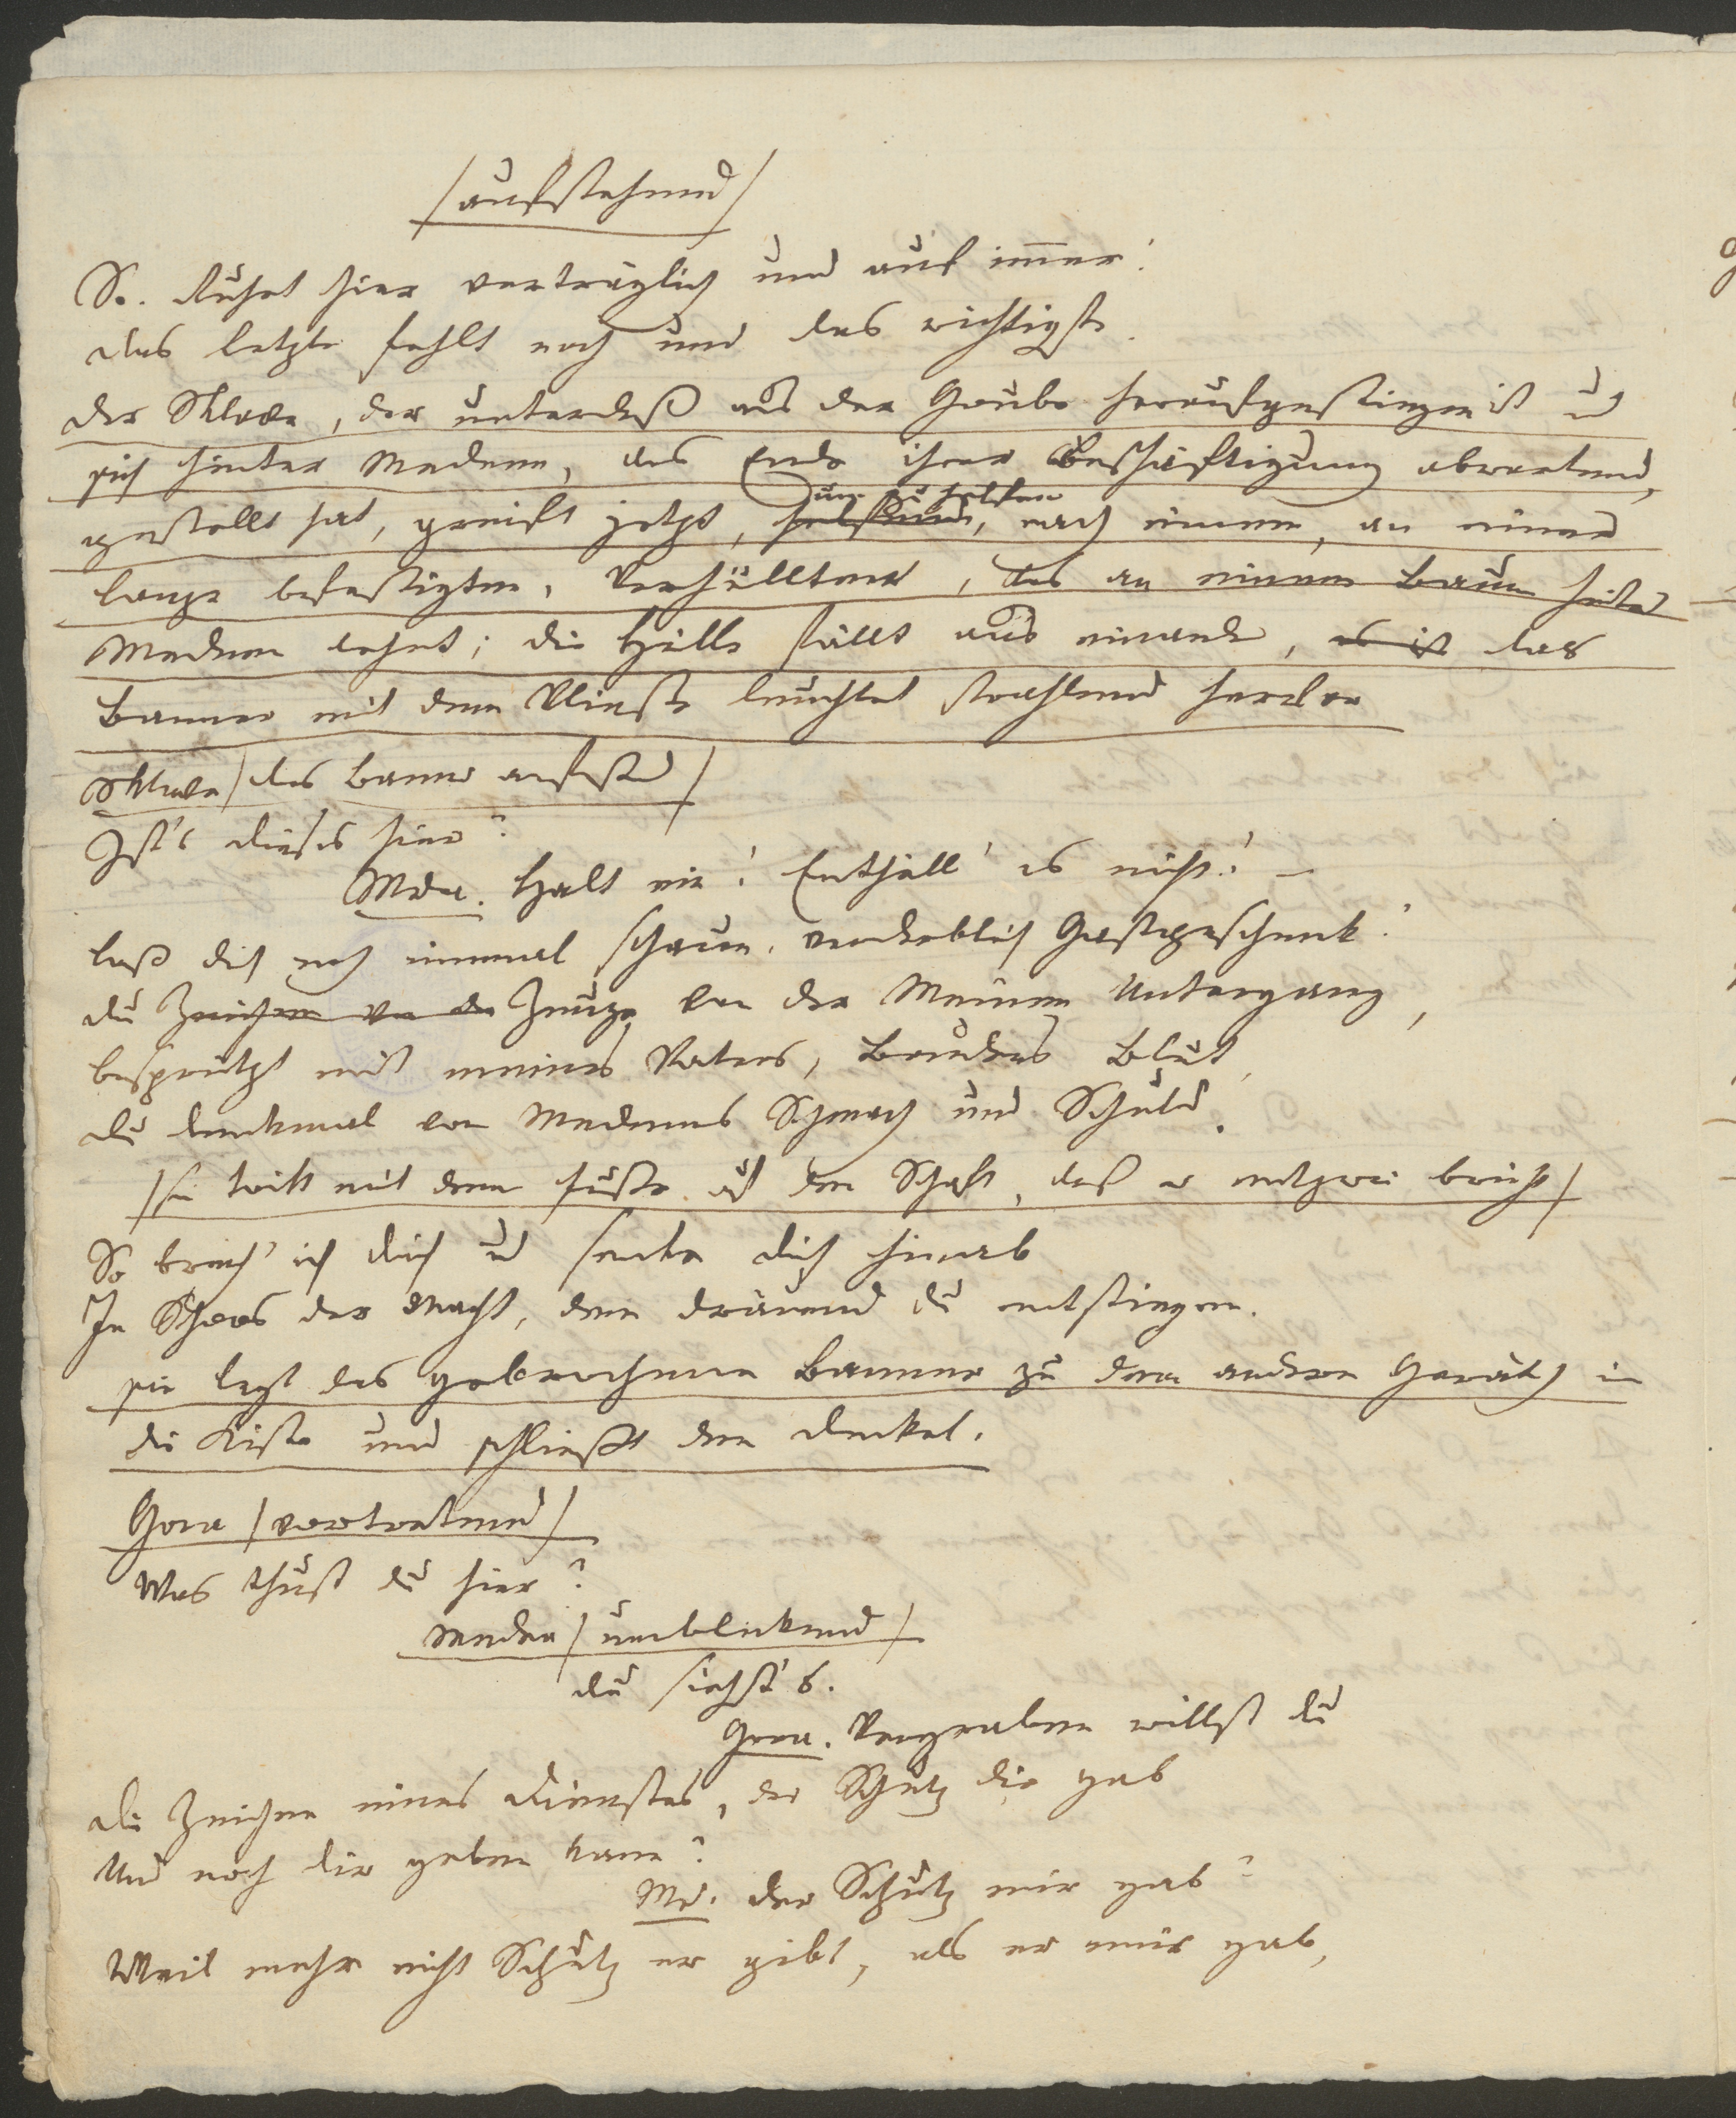 /aufstehend/
So. Ruhet hier verträglich und auf immer!
Das letzte fehlt noch und das wichtigste.
Der Sklave, der unterdeß aus der Grube heraufgestiegen ist u
sich hinter Medeen, das Ende ihrer Beschäftigung abwartend,
um zu helfen
gestellt hat, greift jetzt, helfend, nach einem, an einer
Lanze befestigten, Verhüllten, das an einem Baum hinter
Medeen lehnt; die Hülle fällt aus einander, es ist das
Banner mit dem Vließe leuchtet strahlend hervor
Sklave /das Banner anfassend/
Ist's dieses hier?
Medea. Halt ein! Enthüll' es nicht! –
Laß dich noch einmal schauen, verderblich Gastgeschenk!
Du Zeichen von der Zeuge von der Meinen Untergang,
bespritzt mit meines Vaters, Bruders Blut,
Du Denkmal von Medeens Schmach und Schuld.
/sie tritt mit dem Fuße auf den Schaft, daß er entzwei bricht/
So brech' ich dich und senke dich hinab
In Schoos der Nacht, dem dräuend du entstiegen.
sie legt das gebrochene Banner zu dem andern Geräth in
die Kiste und schließt den Deckel.
Gora /vortretend/
Was thust du hier?
Medea /umblickend/
Du siehst's.
Gora. Vergraben willst du
Die Zeichen eines Dienstes, der Schutz dir gab
Und noch dir geben kann?
Md. Der Schutz mir gab?
Weil mehr nicht Schutz er gibt, als er mir gab,